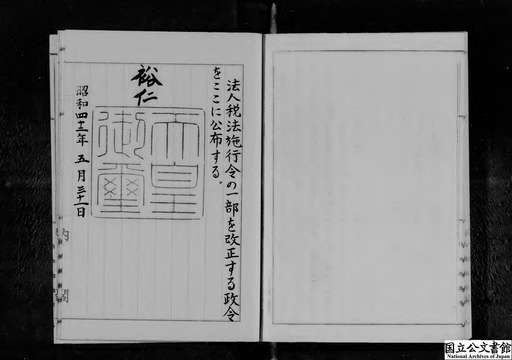 法人税法施行令の一部を改正する政令
をここに公布する。
裕仁
天皇
御璽
昭和四十三年五月三十一日
内閣
国立公文書館
National Archives of Japan